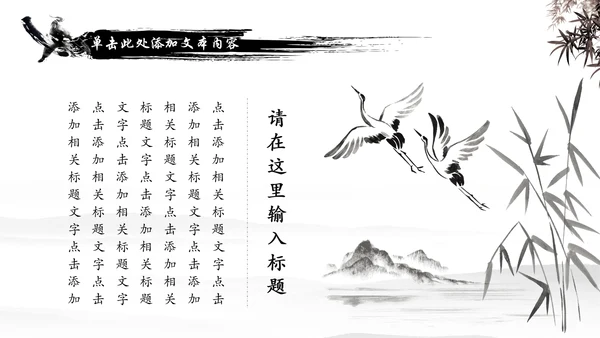 单击此处添加文本内容
请在这里输入标题
点击添加相关标题文字点击
添加相关标题文字点击添加
相关标题文字点击添加相关
标题文字点击添加相关标题
文字点击添加相关标题文字
点击添加相关标题文字点击
添加相关标题文字点击添加